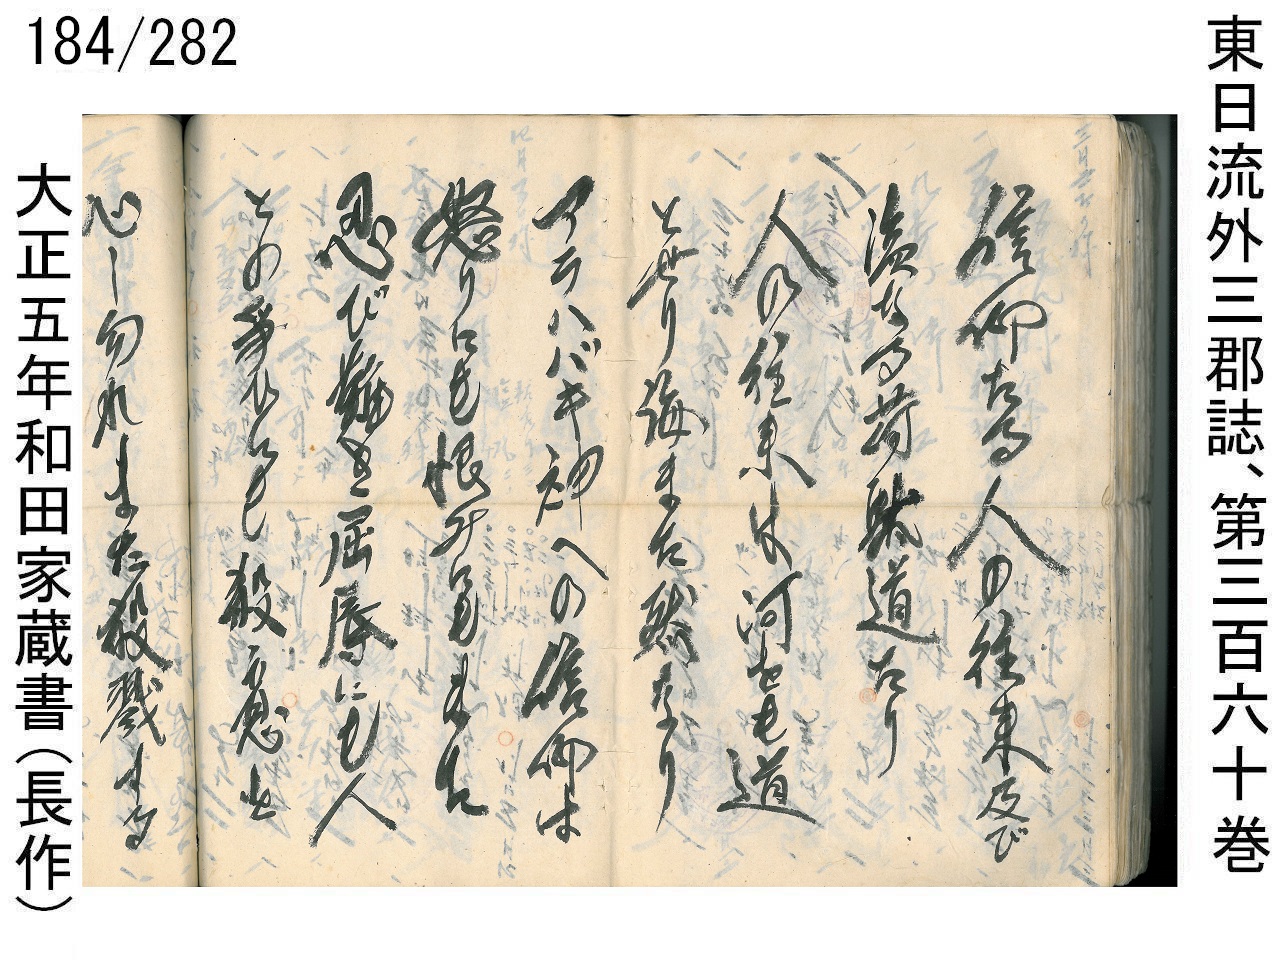 184/282
東日流外三郡誌、第三百六十巻
信仰たる人の往来及び
塩なる荷駄道たり
人の往来は河せも道
とせり海また然なり
アラハバキ神への信仰は
怒りにも恨みにもまた
忍び難き屈辱にも人
との争ひにも殺意は
心し勿れまた殺戮する
大正五年和田家蔵書(長作)